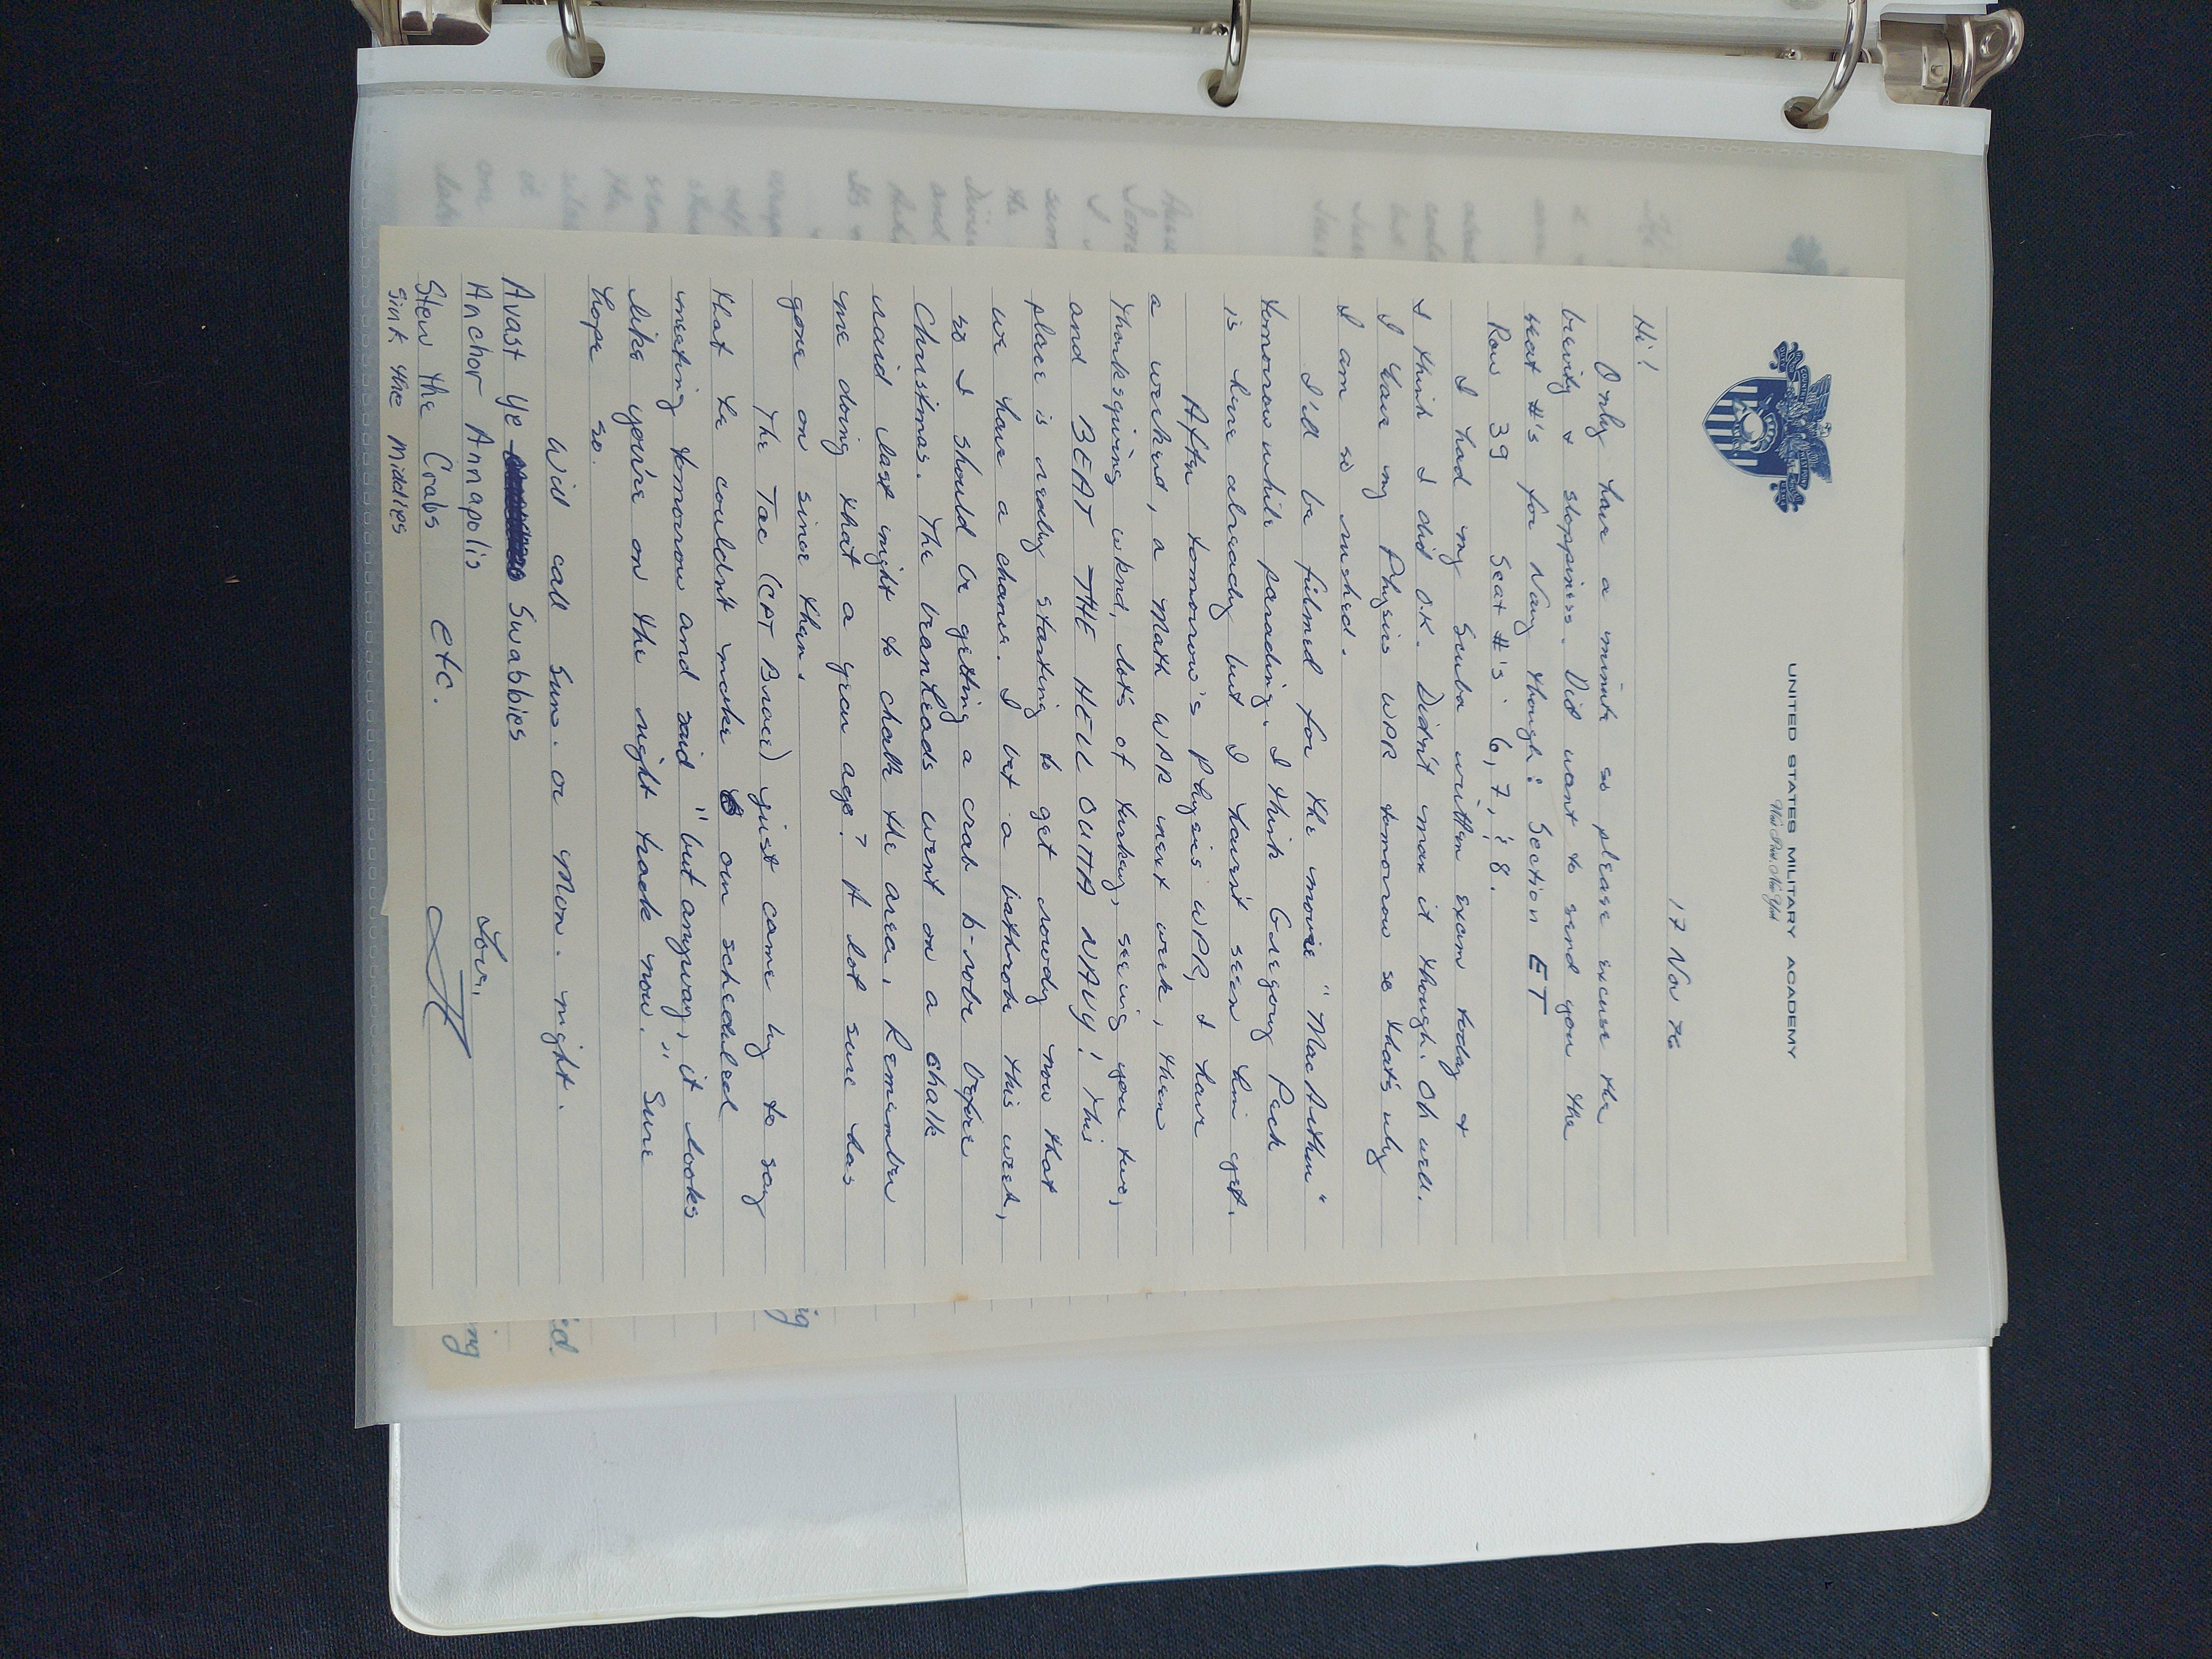 UNITED STATES MILITARY ACADEMY
West Point, New York
17 Nov 76
Hi!
Only have a minute so please excuse the
brevity & sloppiness. Did want to send you the
seat #'s for Navy though: Section ET
Row 39 Seat #'s 6, 7, & 8.
I had my Scuba written exam today &
I think I did O.K. Didn't max it though. Oh well.
I have my Physics WPR tomorrow so that's why
I am so rushed.
I'll be filmed for the movie "MacArthur"
tomorrow while parading. I think Gregory Peck
is here already but I haven't seen him yet.
After tomorrow's Physics WPR, I have
a weekend, a Math WPR next week, then
Thanksgiving wknd, lots of turkey, seeing you two,
and BEAT THE HELL OUTTA NAVY! This
place is really starting to get rowdy now that
we have a chance. I bet a bathrobe this week,
so I should be getting a crab b-robe before
Christmas. The beanheads went on a chalk
raid last night to chalk the area. Remember
me doing that a year ago? A lot sure has
gone on since then.
The Tac (CPT Brace) just came by to say
that he couldn't make our scheduled
meeting tomorrow and said "but anyway, it looks
like you're on the right track now." Sure
hope so.
Will call Sun. or Mon. night.
Avast Ye Swabbies
Anchor Annapolis
Love,
Stew the Crabs etc.
Sink the Middies
ig
id.
ng